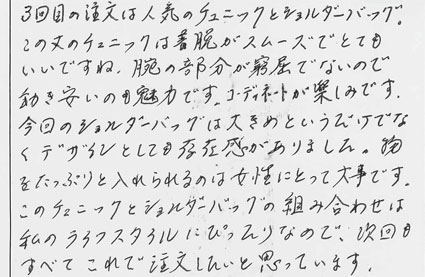 3回目の注文は人気のチュニックとショルダーバッグ。
この丈のチュニックは着脱がスムーズでとても
いいですね。腕の部分が窮屈でないので
動き安いのも魅力です。コーディネートが楽しみです。
今回のショルダーバッグは大きめというだけでな
くデザインとしても存在感がありました。物
をたっぷりと入れられるのは女性にとって大事です。
このチュニックとショルダーバッグの組み合わせは
私のライフスタイルにぴったりなので、次回も
すべてこれで注文したいと思っています。